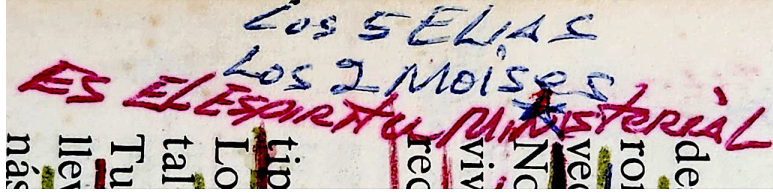 Los 5 ELIAS
Los 2 Moises
ES EL ESPIRITU MINISTERIAL
de
ro
ve
No
viv
rec
tip
Lo
tal
Tu
llev
nás